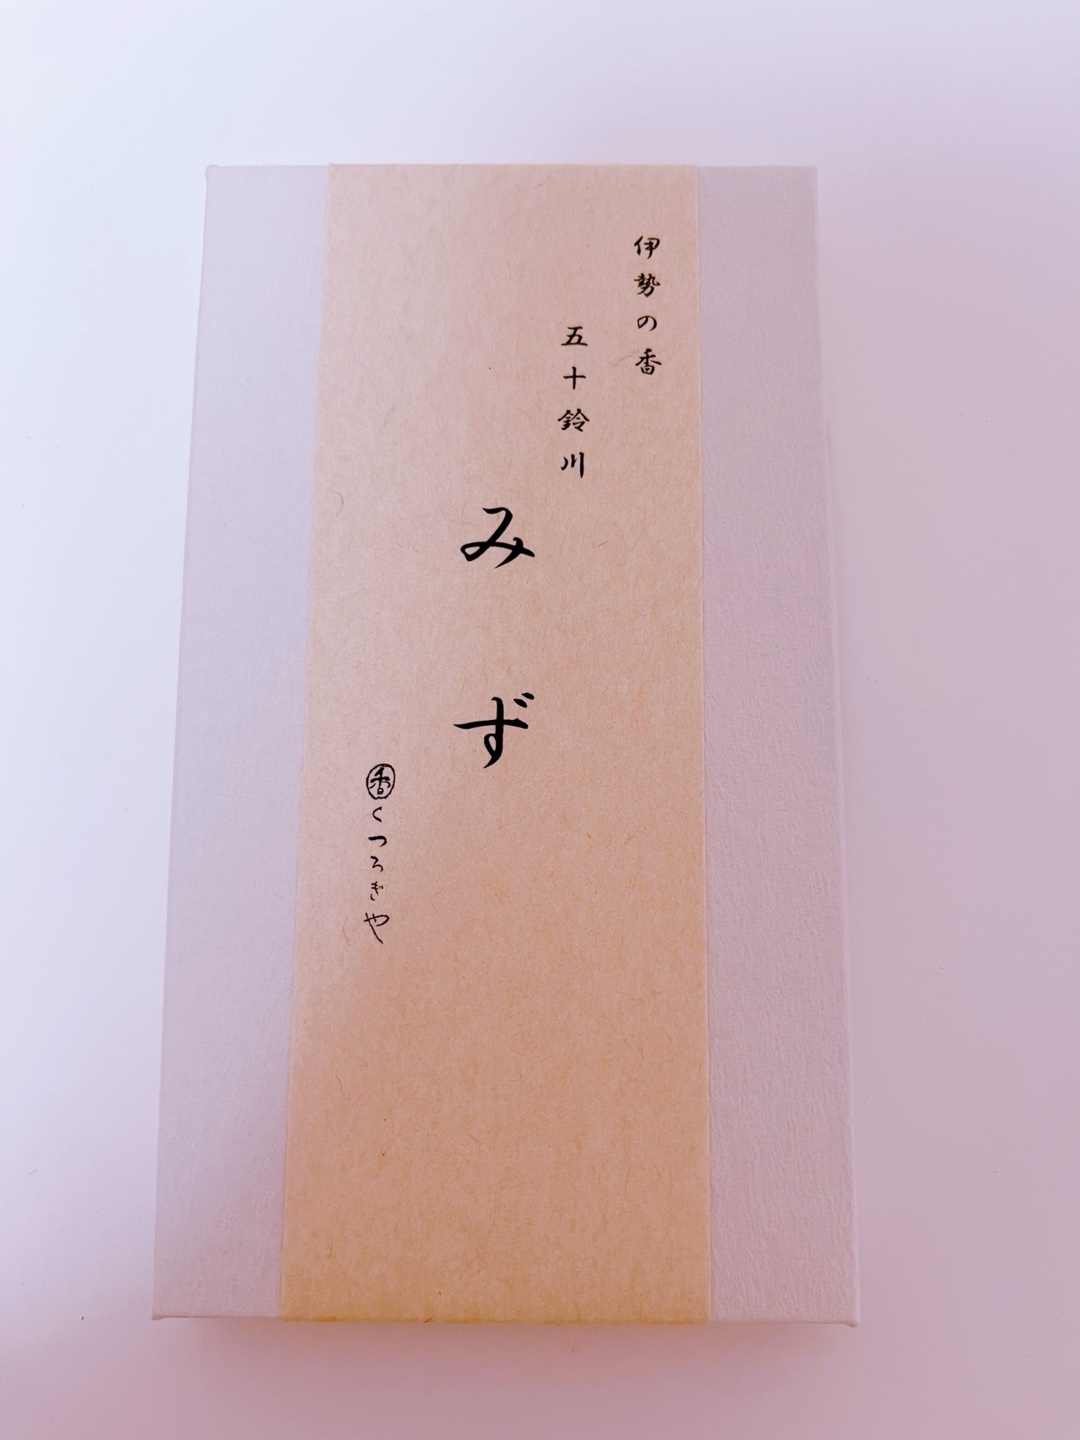 伊勢の香
五十鈴川
みず
香くつろぎや